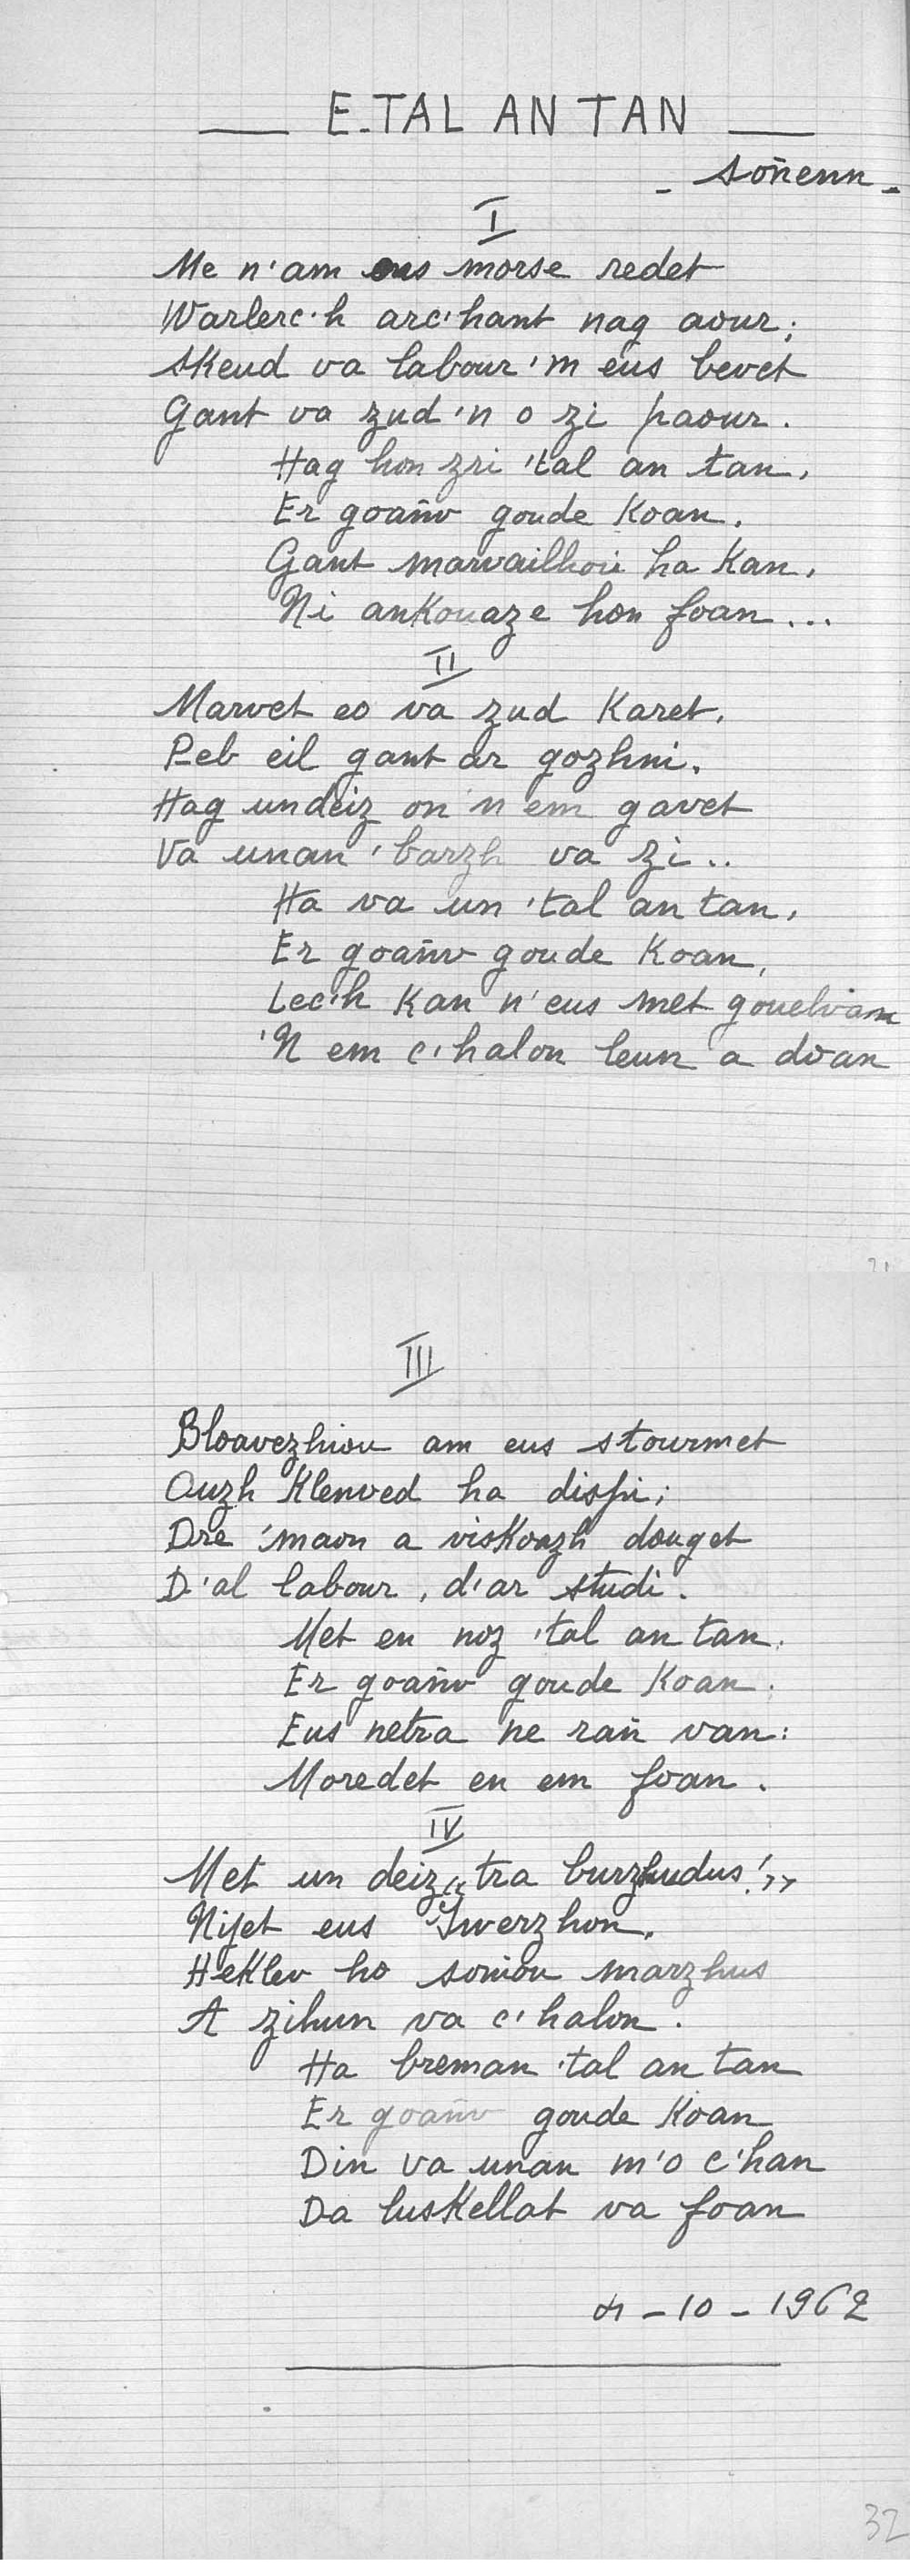 E-TAL AN TAN
- soñenn -
I
Me n'am eus morse redet
Warlerc'h arc'hant nag aour;
Skeud va labour 'm eus bevet
Gant va zud 'n o zi paour.
Hag hon zri 'tal an tan,
Er goañv goude koan,
Gant marvailhoù ha kan,
Ni ankouaze hon foan...
II
Marvet eo va zud karet,
Peb eil gant ar gozhni,
Hag un deiz on 'n em gavet
Va unan 'barzh va zi..
Ha va un 'tal an tan,
Er goañv goude koan,
Lec'h kan n'eus met gouelvan
'N em c'halon leun a doan
III
Bloavezhiou am eus stourmet
Ouzh klenved ha dispi;
Dre 'maon a viskoazh douget
D'al labour, d'ar studi.
Met en noz 'tal an tan,
Er goañv goude koan,
Eus netra ne ran van:
Moredet en em foan.
IV
Met un deiz "tra burzhudus!"
Nijet eus Iwerzhon,
Heklev ho soniou marzhus
A zihun va c'halon.
Ha breman 'tal an tan
Er goañv goude koan
Din va unan m'o c'han
Da luskellat va foan
4-10-1962
32